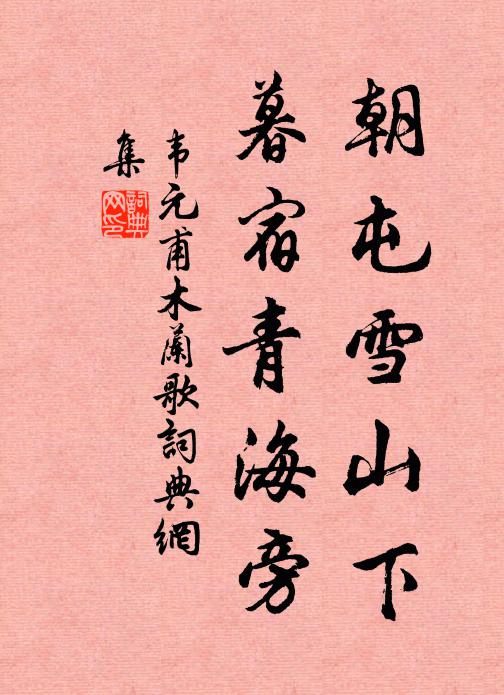 朝屯雪山下
暮宿青海旁
韦元甫木蘭歌詞典網
集
詞典網印